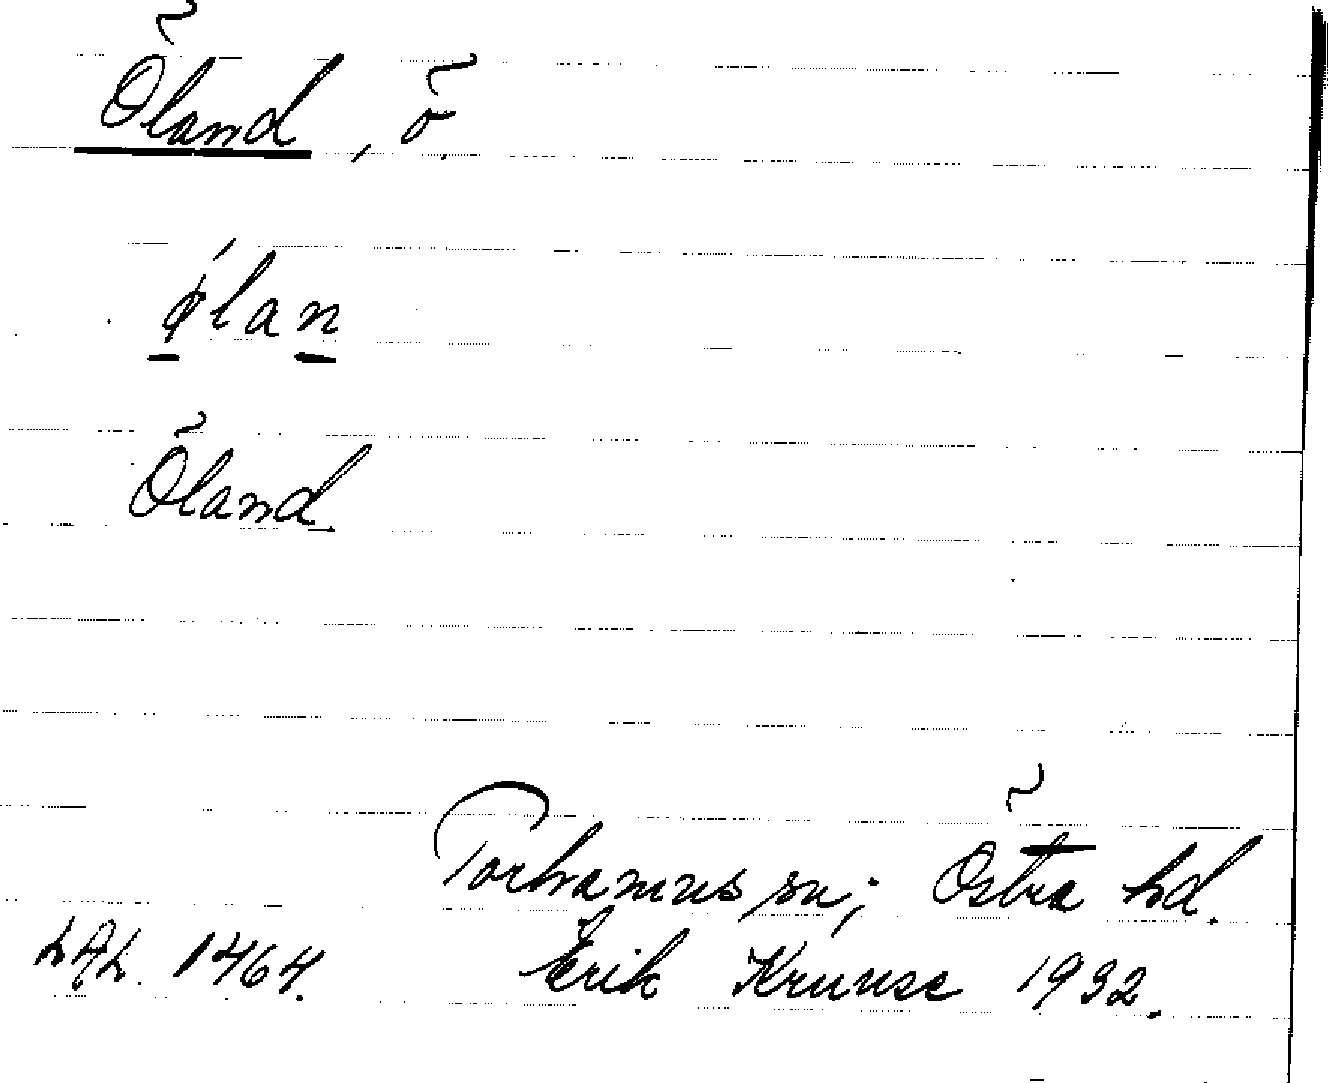 Öland, ö.
ølan
Öland.
Torhamns sn; Östra hd.
LAL. 1464. Erik Kruuse 1932.